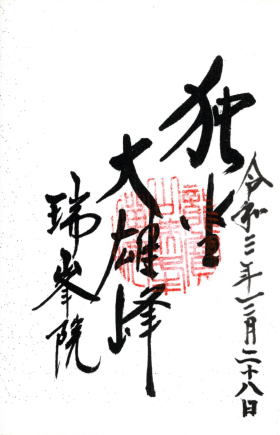 令和三年三月二十八日
独坐
大雄峰
瑞峯院